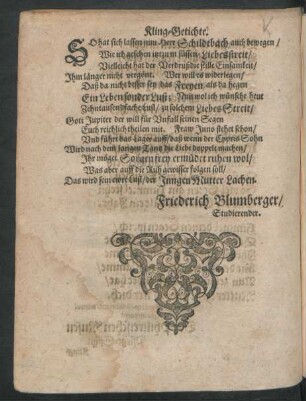 Kling-Getichte.
SO hat sich lassen nun Herr Schildtbach auch bewegen /
Wie ich gesehen im süssen Liebesstreit /
Vielleicht hat der Verdruß die stille Einsamkeit /
Ihm länger nicht vergönt. Wer will es widerlegen /
Daß da nicht besser sey das Freyen als da hegen
Ein Leben sonder Lust? Nun wol ich wünsche heut
Zehntausendfache Lust / zu solchem Liebes-Streit /
Gott Jupiter der will für Unfall seinen Segen
Euch reichlich theilen mit. Fraw Juno stehet schon /
Und führt das auff / daß wenn der Cypris Sohn
Wird nach dem jungen Tantz die Liebe doppelt machen /
Ihr müget Sorgen frey ermüdet ruhen wol /
Was aber auff die Ruh gewisser folgen soll /
Das wird sein ewre Lust / der Jungen Mutter Lachen.
Friederich Blumberger /
Studierender.